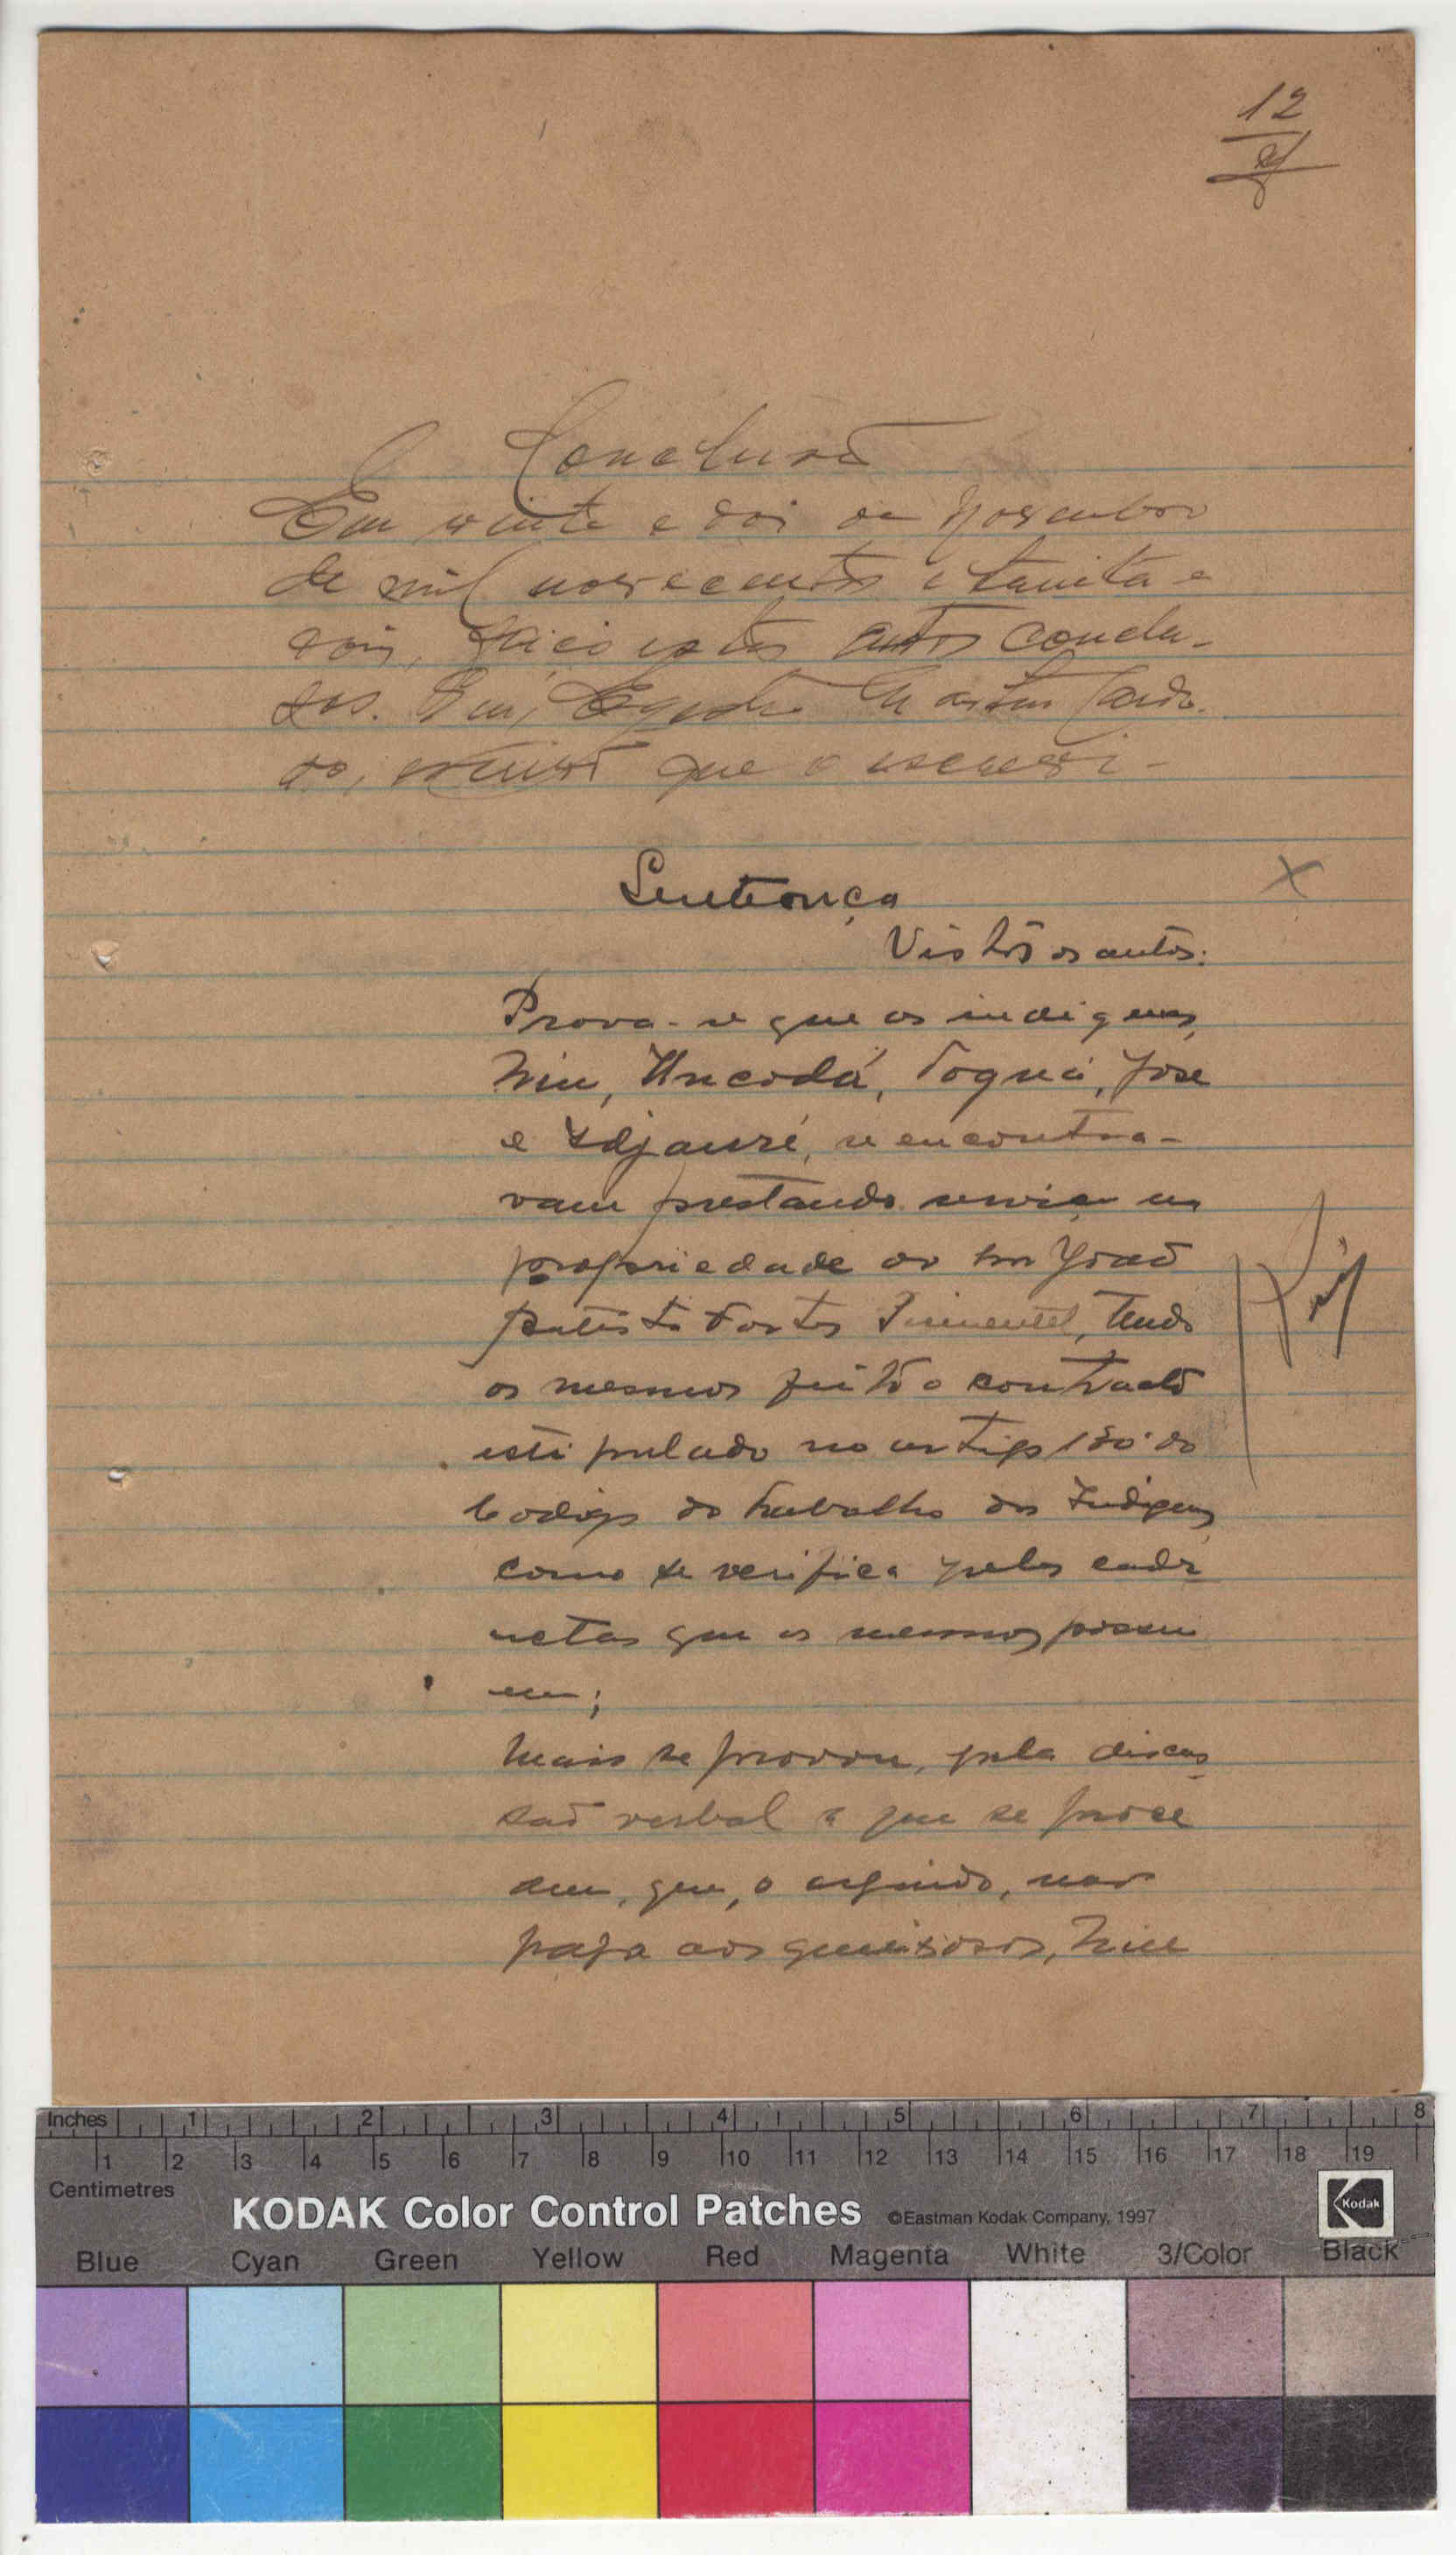 12
Conclusão
Em vinte e dois de Novembro
de mil novecentos e trinta e
dois, faço estes autos conclu-
sos. Eu, Martins Cardo
so, escrivão que o escrevi -
Sentença
Vistos os autos:
Prova-se que os indigenas,
Niu, Uncodá, Toqué, José
e , se encontra-
vam prestando serviço na
propriedade do snr João
Batista Fortes Pimentel, tendo
os mesmos feito o contracto
estipulado no artigo 130º do
Codigo do Trabalho dos Indigenas
como se verifica pelas cader
netas que os mesmos possu
em;
Mais se provou, pela discus
são verbal a que se proce
deu, que, o arguido, não
paga aos queixosos, Niu
Inches 1 2 3 4 5 6 7 8
1 2 3 4 5 6 7 8 9 10 11 12 13 14 15 16 17 18 19
Centimetres
KODAK Color Control Patches ©Eastman Kodak Company, 1997 Kodak
Blue Cyan Green Yellow Red Magenta White 3/Color Black